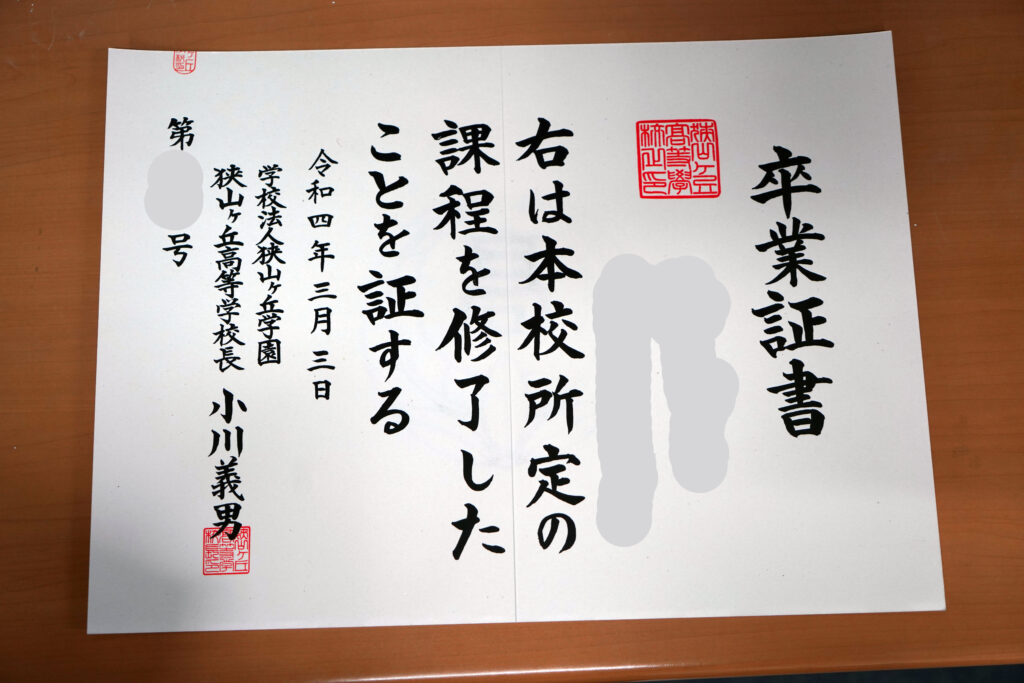 卒業証書
右は本校所定の
課程を修了した
ことを証する
令和四年三月三日
学校法人狭山ヶ丘学園
狭山ヶ丘高等学校長 小川義男
第 号